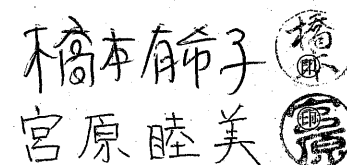 橋本有希子 橋本 印
宮原睦美 宮原 印